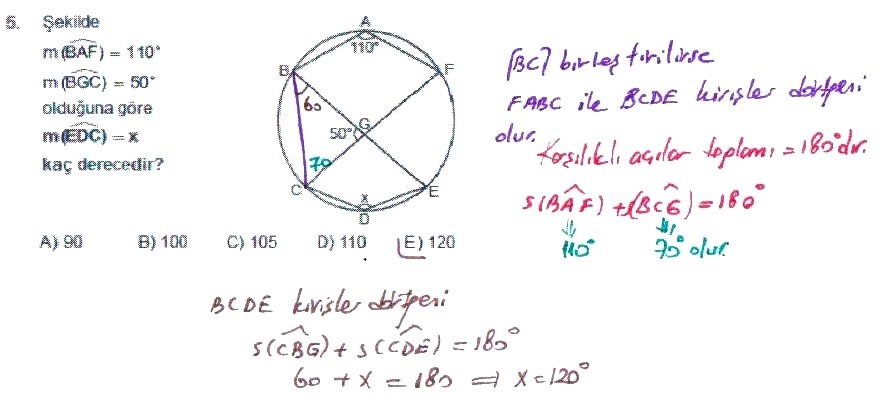 5. Şekilde
m(BAF) = 110°
m(BGC) = 50°
olduğuna göre
m(EDC) = x
kaç derecedir?
A
110°
B
F
60
50°
G
70
C
E
x
D
A) 90 B) 100 C) 105 D) 110 E) 120
[BC] birleştirilirse
FABC ile BCDE kirişler dörtgeni
olur.
Karşılıklı açılar toplamı = 180° dir.
s(BAF) + s(BCG) = 180°
⇓ ⇓
110° 70° olur.
BCDE kirişler dörtgeni
s(CBG) + s(CDE) = 180°
60 + x = 180 ⇒ x = 120°